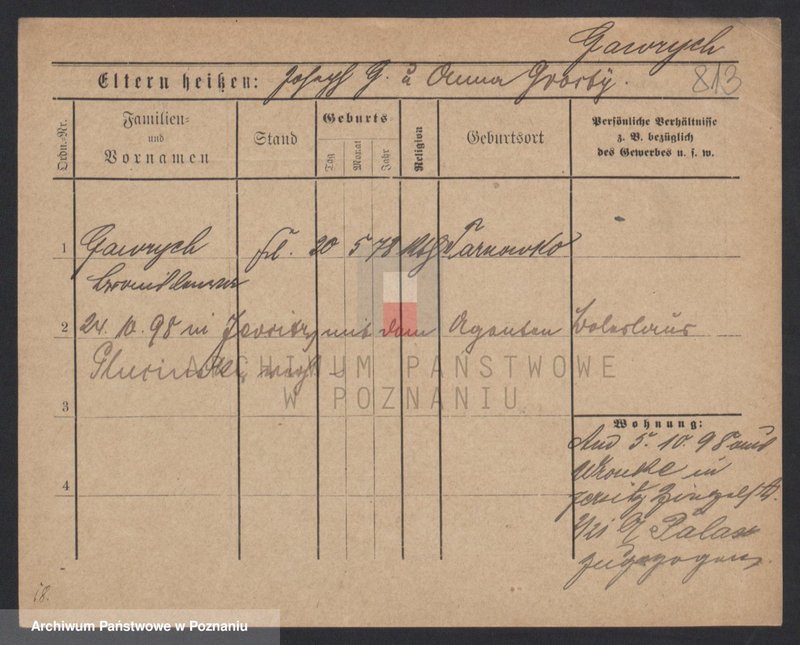 Gawrych
Eltern heißen: Joseph G. u Anna 813
Ordn.-Nr.
Familien-
und
Vornamen
Stand
Geburts
Tag
Monat
Jahr
Religion
Geburtsort
Persönliche Verhältnisse
z. B. bezüglich
des Gewerbes u. s. w.
1 Gawrych Frl. 20 5 78 kth Tarnowko
2 24. 10. 98 in Jersitz mit dem Agenten Boleslaus
ARCHIWUM PAŃSTWOWE
W POZNANIU
3
Wohnung:
Am 5. 10. 98 aus
Wronke in
4
Jersitz
zugezogen.
18.
Archiwum Państwowe w Poznaniu